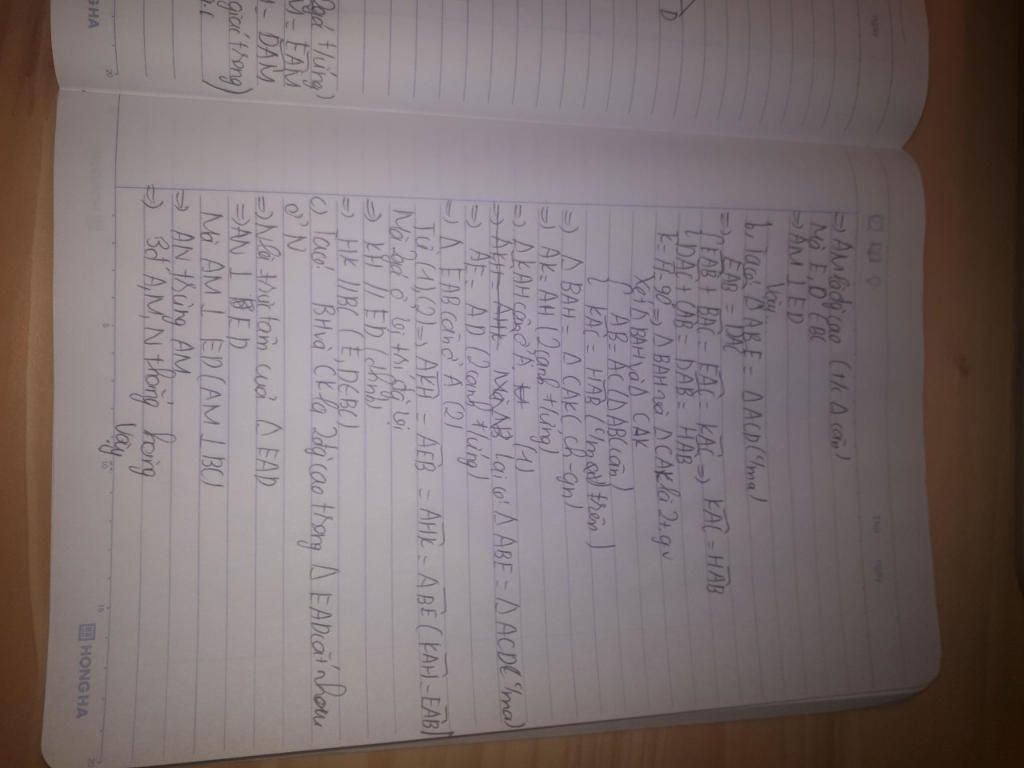 góc t/ứng)
= EAM
= DAM
góc trong)
D
HONG HA
20
Thứ
ngày
⇒ AM là đg cao (T/c Δ cân)
Mà ED ∈ BC
⇒ AM ⊥ ED
Vậy...
b. Ta có ΔABE = ΔACD (cma)
⇒ EAB = DAC
EAB + BAC = EAC = KAC ⇒ KAC = HAB
DAC + CAB = DAB = HAB
⇒ ΔBAH và ΔCAK là 2 t.gv
Xét ΔBAH và ΔCAK
AB = AC (ΔABC cân)
KAC = HAB (cm trên)
⇒ ΔBAH = ΔCAK (ch-gn)
⇒ AK = AH (2 cạnh t/ứng)
⇒ ΔKAH cân ở A (1)
Mà lại có ΔABE = ΔACD (cma)
⇒ AE = AD (2 cạnh t/ứng)
⇒ Δ EAB cân ở A (2)
Từ (1), (2) ⇒ AKH = AEB = AHK = ABE (KAH = EAB)
Mà 2 góc ở vị trí đồng vị
⇒ KH // ED (dhnb)
⇒ HK // BC (E, D ∈ BC)
c) Ta có BH và CK là 2 đg cao trong Δ EAD cắt nhau
ở N
⇒ N là trực tâm của Δ EAD
⇒ AN ⊥ BED
Mà AM ⊥ ED (AM ⊥ BC)
⇒ AN trùng AM
⇒ 3đ A, M, N thẳng hàng
Vậy
5
10
15
HONG HA
20